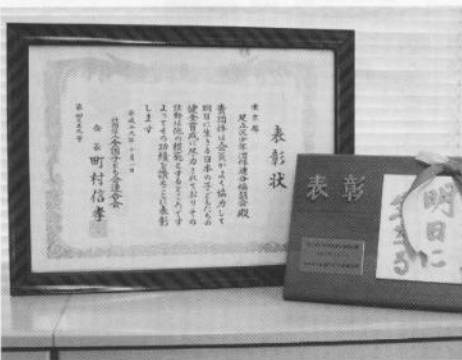 表彰状
東京都
足立区少年団体連合協議会殿
貴団体は会員がよく協力して
明日に生きる日本の子どもたちの
健全育成に尽力されておりその
活動は他の模範とするところです
よってその功績を讃えここに表彰
します
平成十九年十月一日
社団法人全国子ども会連合会
会長 町村信孝
表彰
明日に
生きる